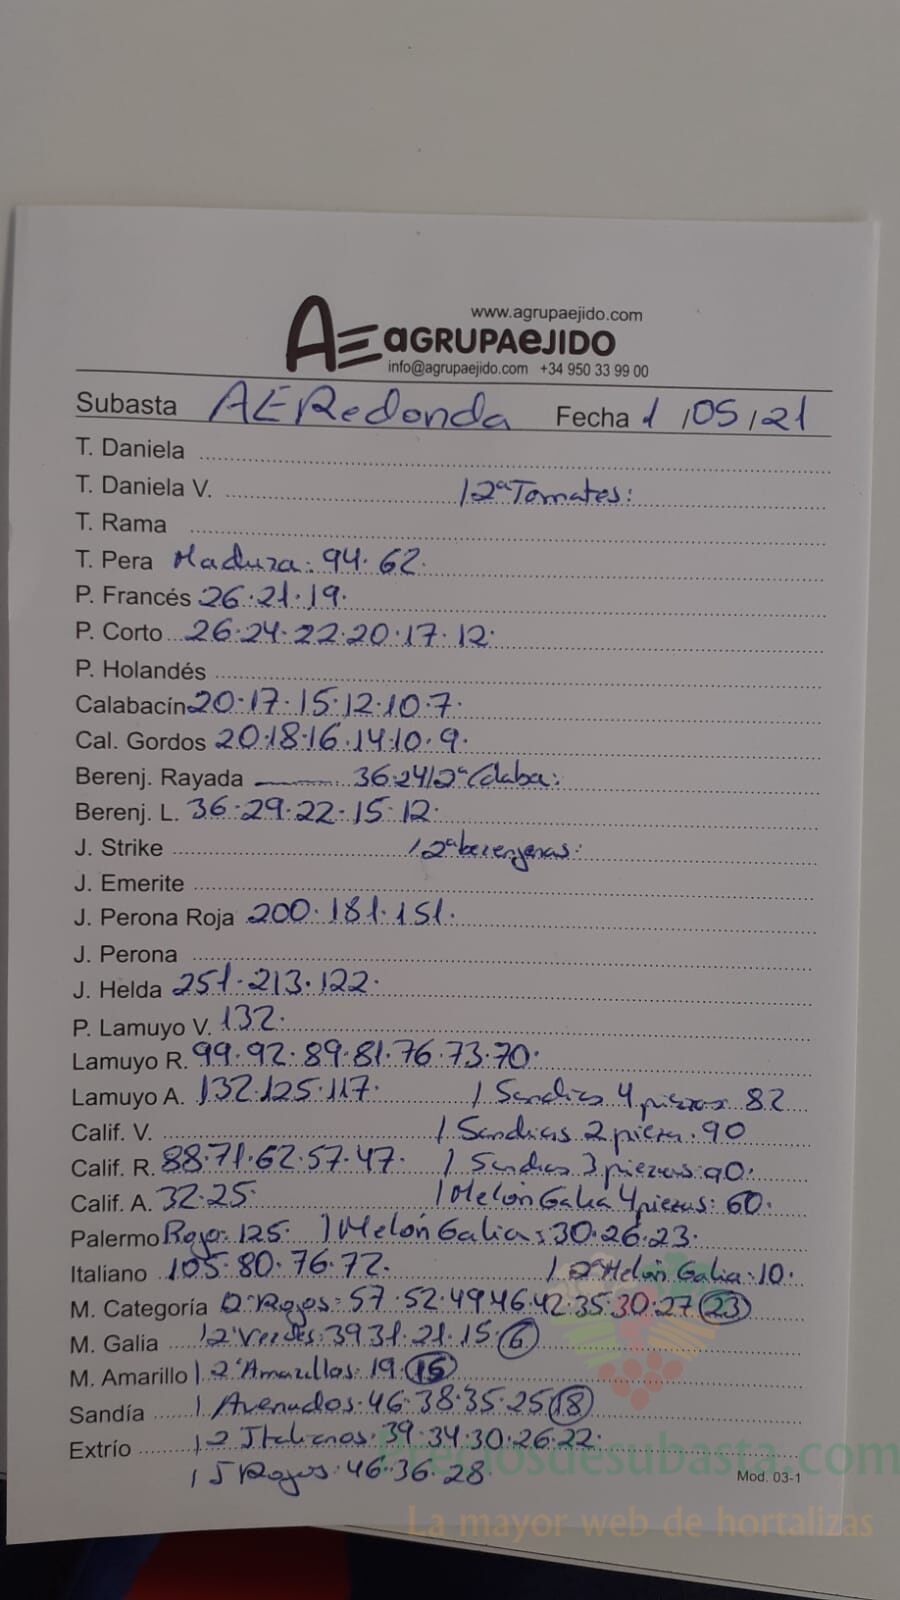 www.agrupaejido.com
AE aGRUPAeJIDO
info@agrupaejido.com +34 950 33 99 00
Subasta AERedonda Fecha 1 /05/21
T. Daniela
T. Daniela V. / 2ª Tomates:
T. Rama
T. Pera Madura: 94. 62.
P. Francés 26.21.19.
P. Corto 26.24.22.20.17.12.
P. Holandés
Calabacín 20.17.15.12.10.7.
Cal. Gordos 20.18.16.14.10.9.
Berenj. Rayada 36.24/2ª Calaba:
Berenj. L. 36.29.22.15.12.
J. Strike / 2ª berenjenas:
J. Emerite
J. Perona Roja 200.181.151.
J. Perona
J. Helda 251.213.122.
P. Lamuyo V. 132.
Lamuyo R. 99.92.89.81.76.73.70.
Lamuyo A. 132.125.117. / Sandias 4 piezas 82
Calif. V. / Sandias 2 pieza. 90
Calif. R. 88.71.62.57.47. / Sandias 3 piezas: 90.
Calif. A. 32.25. / Melón Galia 4 piezas: 60.
Palermo Rojo: 125. / Melón Galia: 30.26.23.
Italiano 105.80.76.72. / 2ª Melón Galia. 10.
M. Categoría 2ª Rojos: 57.52.49.46.42.35.30.27 23
M. Galia / 2ª Verdes: 39 31.21.15. 6
M. Amarillo / 2ª Amarillos: 19. 15
Sandía / Asenados. 46.38.35.25 18
Extrío / 2 Italianos. 39.34.30.26.22.
/ J Rojos: 46.36.28.
Mod. 03-1
Preciosdesubasta.com
La mayor web de hortalizas